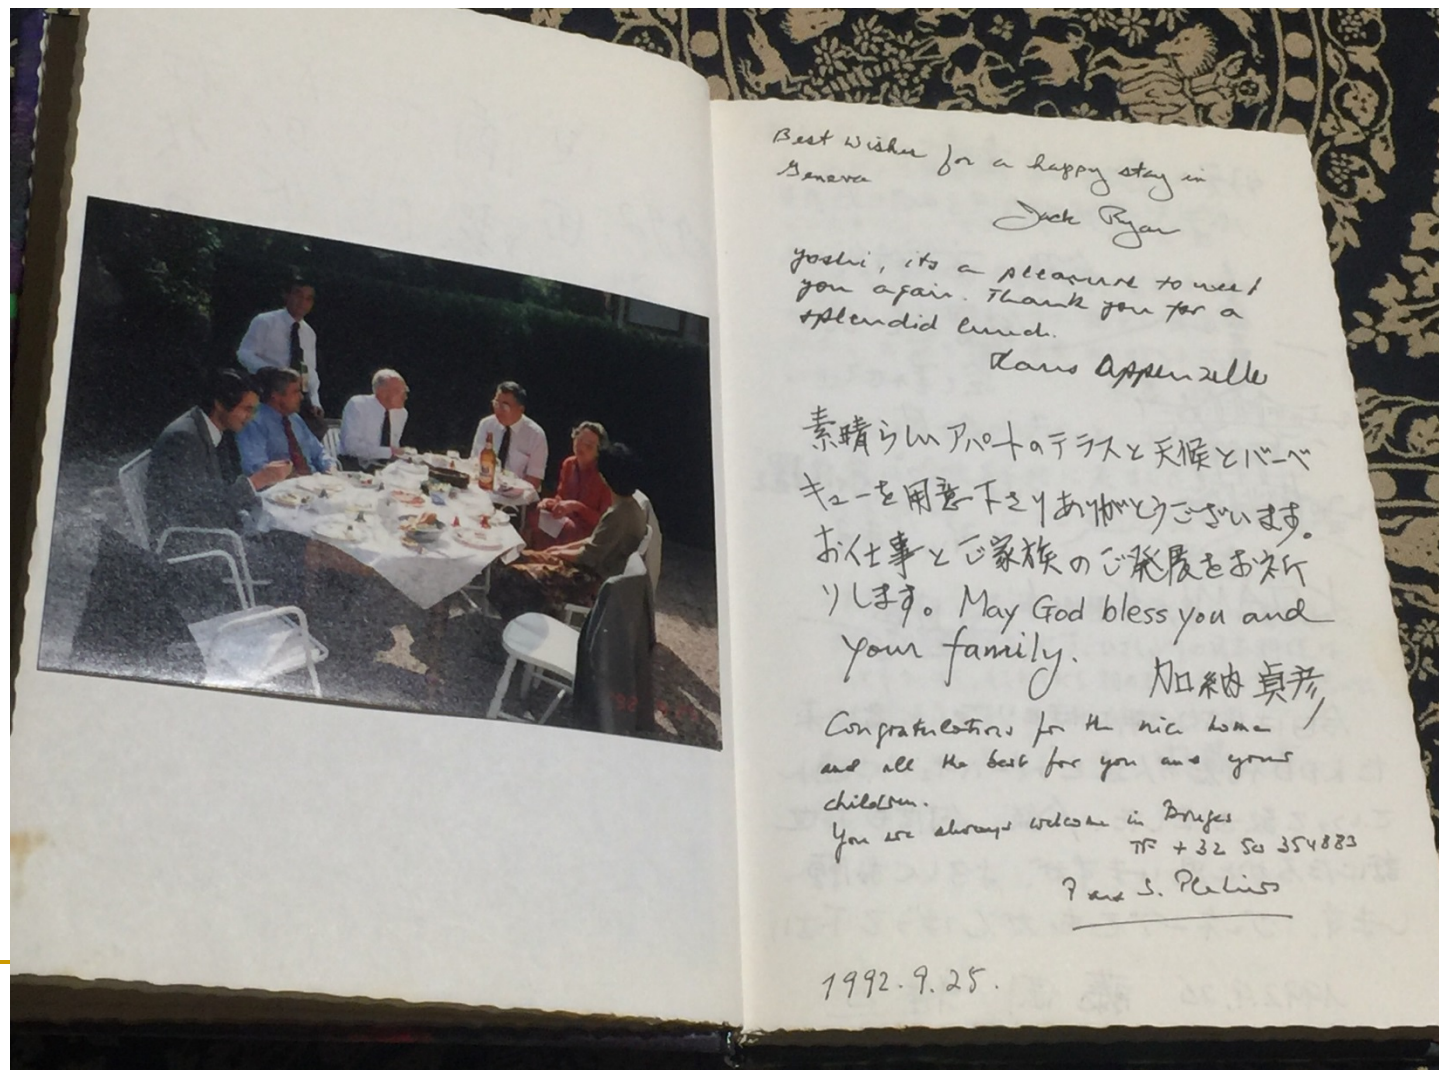 Best Wishes for a happy stay in
Geneva
Jack Ryan
Yoshi, its a pleasure to meet
you again. Thank you for a
splendid lunch.
Hans Appenzeller
素晴らしいアパートのテラスと天候とバーベ
キューを用意下さりありがとうございます。
お仕事とご家族のご発展をお祈
りします。May God bless you and
your family.
加納貞彦
Congratulations for the nice home
and all the best for you and yours
children.
You are always welcome in Bruges
TF +32 50 354883
S.
1992.9.25.